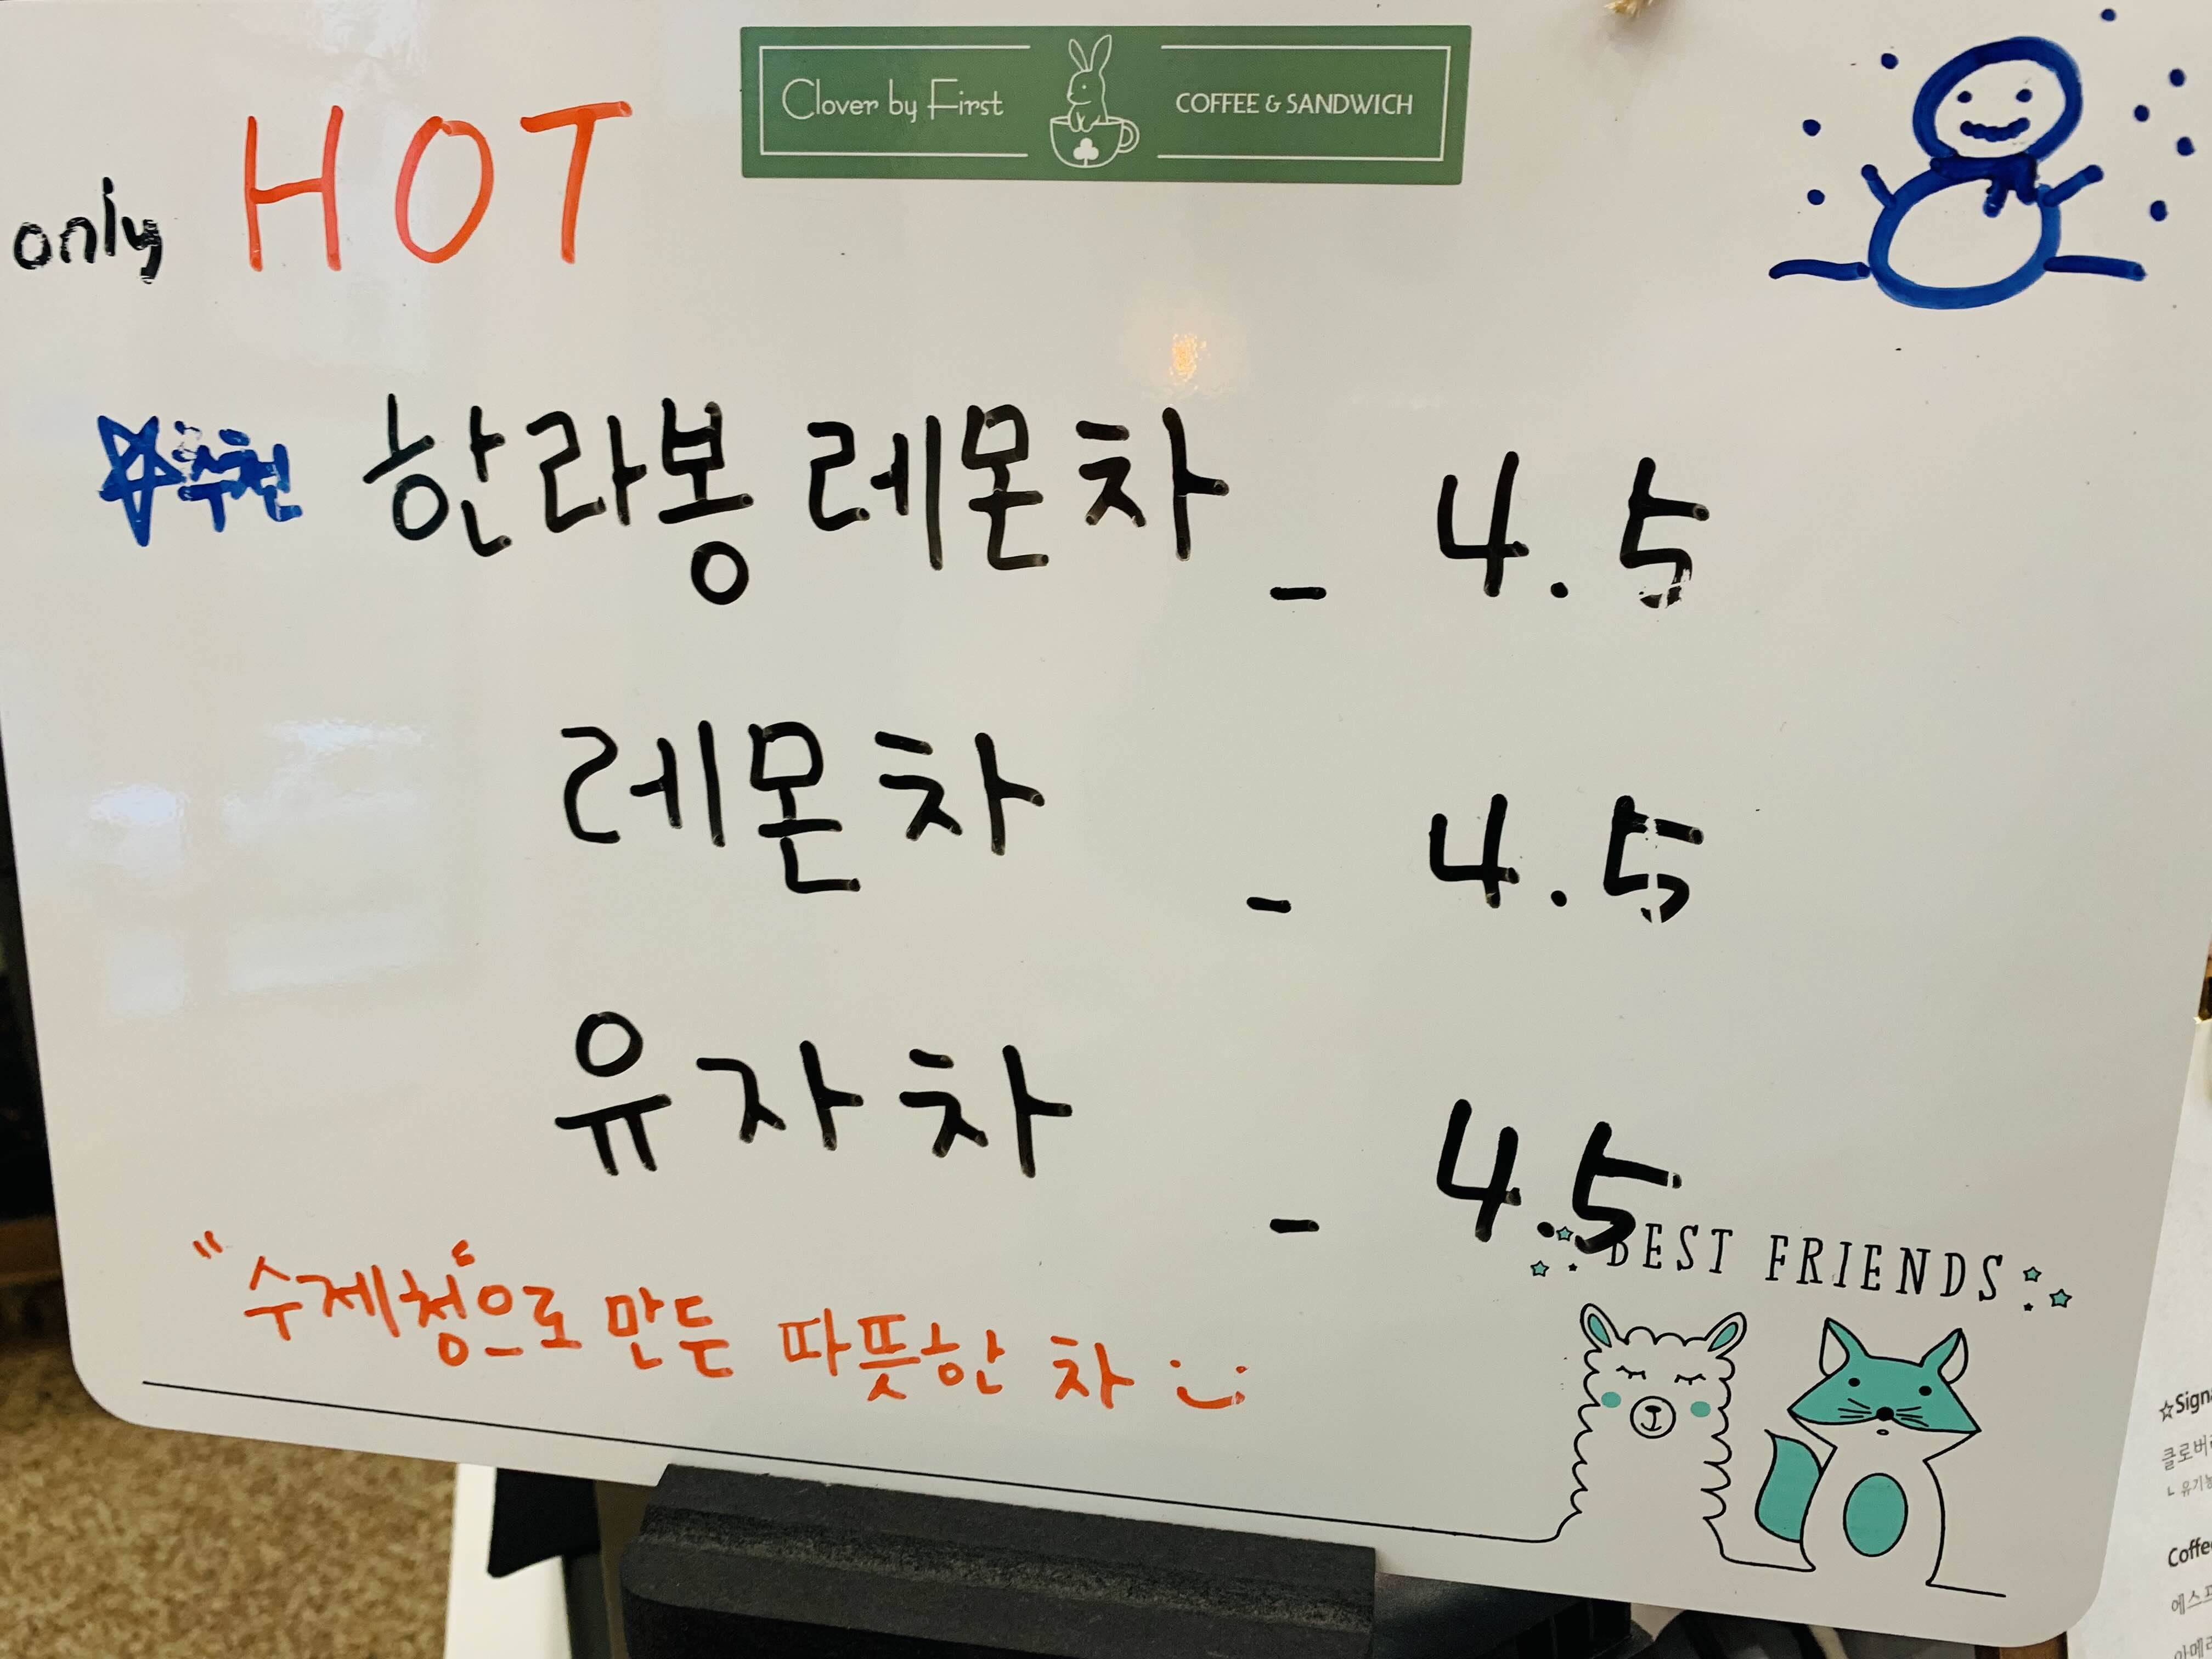 Clover by First COFFEE & SANDWICH
only HOT
추천 한라봉 레몬차 - 4.5
레몬차 - 4.5
유자차 - 4.5
"수제청"으로 만든 따뜻한 차 :)
BEST FRIENDS
☆Sign
클로버
ㄴ 유기
Coffe
에스프
아메리